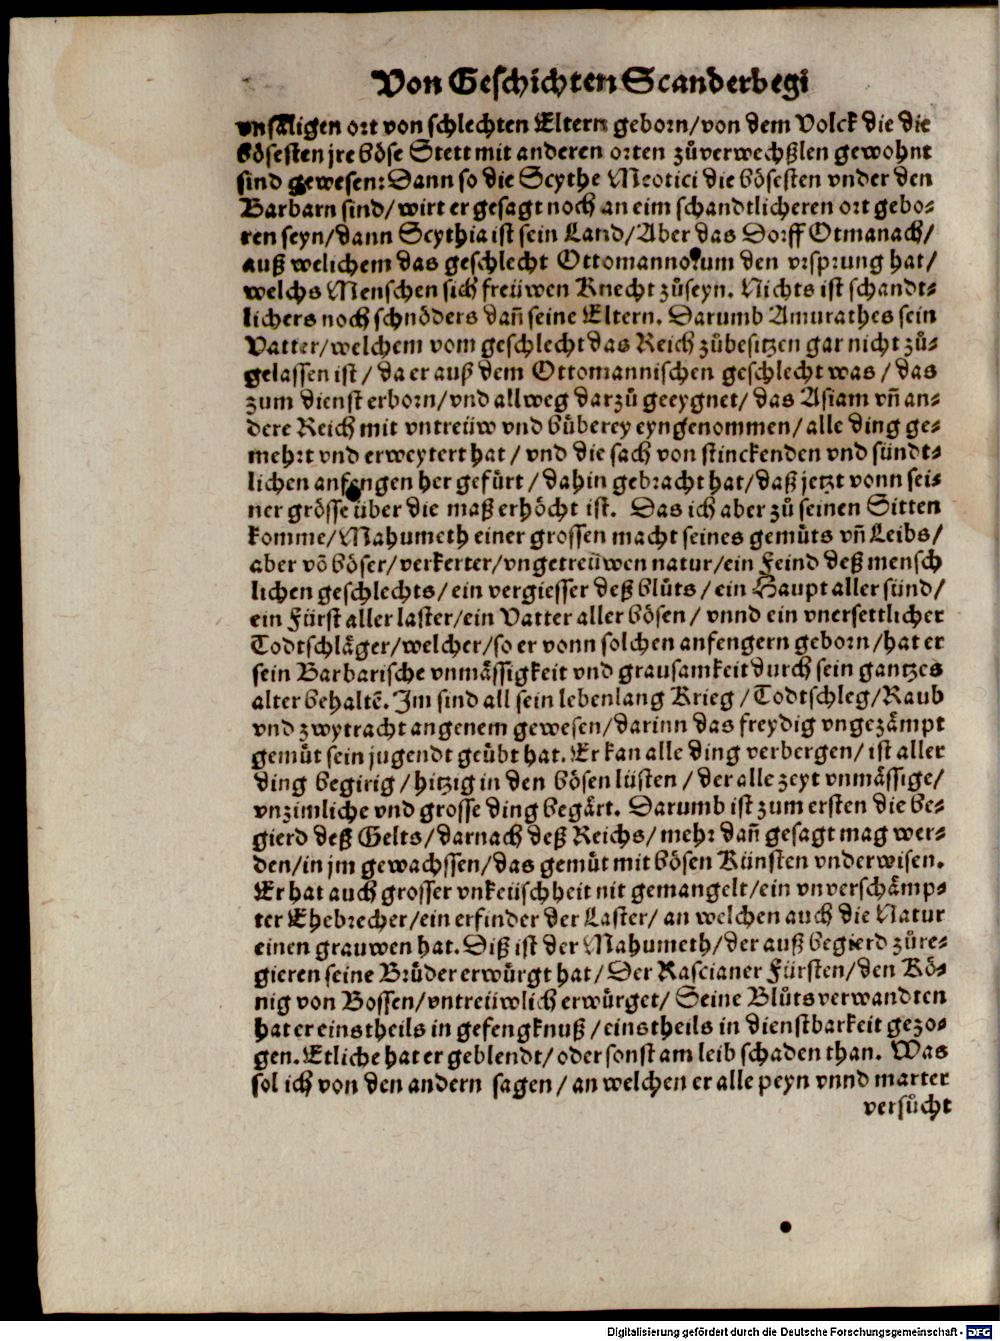 Von Geschichten Scanderbegi
vnsäligen ort von schlechten Eltern geborn/von dem Volck die die
bösesten jre böse Stett mit anderen orten zůverwechßlen gewohnt
sind gewesen: Dann so die Scythe Meotici die bösesten vnder den
Barbarn sind/wirt er gesagt noch an eim schandtlicheren ort gebo-
ren seyn/dann Scythia ist sein Land/Aber das Dorff Otmanach/
auß welichem das geschlecht Ottomannorum den vrsprung hat/
welchs Menschen sich freüwen Knecht zůseyn. Nichts ist schandt-
lichers noch schnöders dañ seine Eltern. Darumb Amurathes sein
Vatter/welchem vom geschlecht das Reich zůbesitzen gar nicht zů-
gelassen ist/da er auß dem Ottomannischen geschlecht was/das
zum dienst erborn/vnd allweg darzů geeygnet/das Asiam vñ an-
dere Reich mit vntreüw vnd bůberey eyngenommen/alle ding ge-
mehrt vnd erweytert hat/vnd die sach von stinckenden vnd sündt-
lichen anfengen her gefürt/dahin gebracht hat/daß jetzt vonn sei-
ner grösse über die maß erhöcht ist. Das ich aber zů seinen Sitten
komme/Mahumeth einer grossen macht seines gemůts vñ Leibs/
aber võ böser/verkerter/vngetreüwen natur/ein Feind deß mensch
lichen geschlechts/ein vergiesser deß blůts/ein Haupt aller sünd/
ein Fürst aller laster/ein Vatter aller bösen/vnnd ein vnersettlicher
Todtschläger/welcher/so er vonn solchen anfengern geborn/hat er
sein Barbarische vnmässigkeit vnd grausamkeit durch sein gantzes
alter behaltẽ. Im sind all sein lebenlang Krieg/Todtschleg/Raub
vnd zwytracht angenem gewesen/darinn das freydig vngezämpt
gemůt sein jugendt geübt hat. Er kan alle ding verbergen/ist aller
ding begirig/hitzig in den bösen lüsten/der alle zeyt vnmässige/
vnzimliche vnd grosse ding begärt. Darumb ist zum ersten die be-
gierd deß Gelts/darnach deß Reichs/mehr dañ gesagt mag wer-
den/in jm gewachssen/das gemůt mit bösen Künsten vnderwisen.
Er hat auch grosser vnkeüschheit nit gemangelt/ein vnverschämp-
ter Ehebrecher/ein erfinder der Laster/an welchen auch die Natur
einen grauwen hat. Diß ist der Mahumeth/der auß begierd zůre-
gieren seine Brůder erwürgt hat/Der Rascianer Fürsten/den Kö-
nig von Bossen/vntreüwlich erwürget/Seine Blůtsverwandten
hat er einstheils in gefengknuß/einstheils in dienstbarkeit gezo-
gen. Etliche hat er geblendt/oder sonst am leib schaden than. Was
sol ich von den andern sagen/an welchen er alle peyn vnnd marter
versůcht
Digitalisierung gefördert durch die Deutsche Forschungsgemeinschaft - DFG